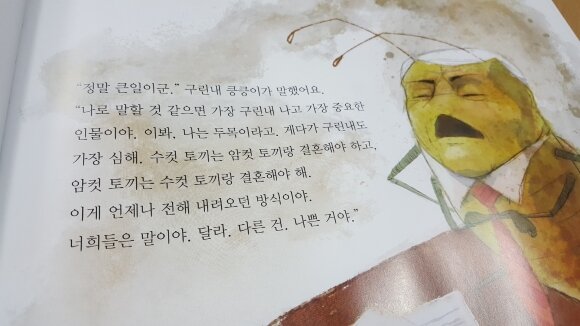 “정말 큰일이군.” 구린내 킁킁이가 말했어요.
“나로 말할 것 같으면 가장 구린내 나고 가장 중요한
인물이야. 이봐. 나는 두목이라고. 게다가 구린내도
가장 심해. 수컷 토끼는 암컷 토끼랑 결혼해야 하고,
암컷 토끼는 수컷 토끼랑 결혼해야 해.
이게 언제나 전해 내려오던 방식이야.
너희들은 말이야. 달라. 다른 건. 나쁜 거야.”